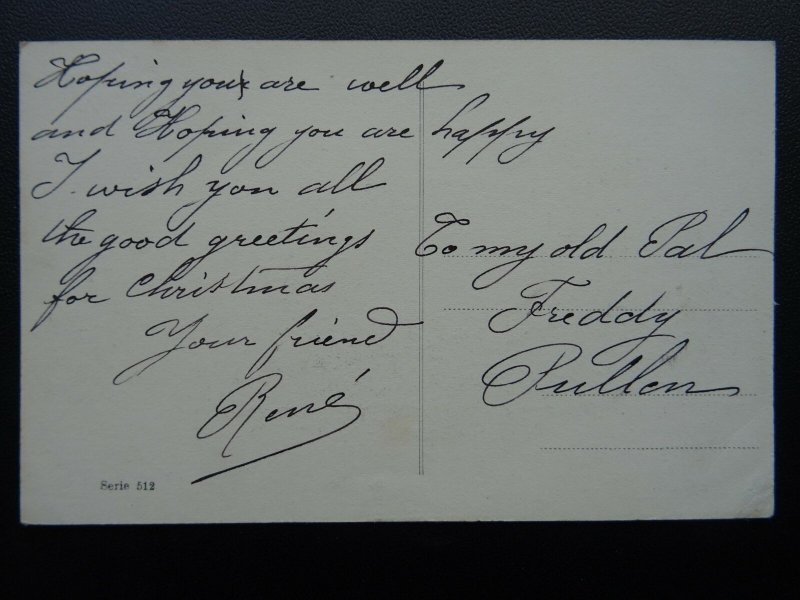 Hoping you are well
and Hoping you are happy
I wish you all
the good greetings
for Christmas
Your friend
René
To my old Pal
Freddy
Pullen
Serie 512